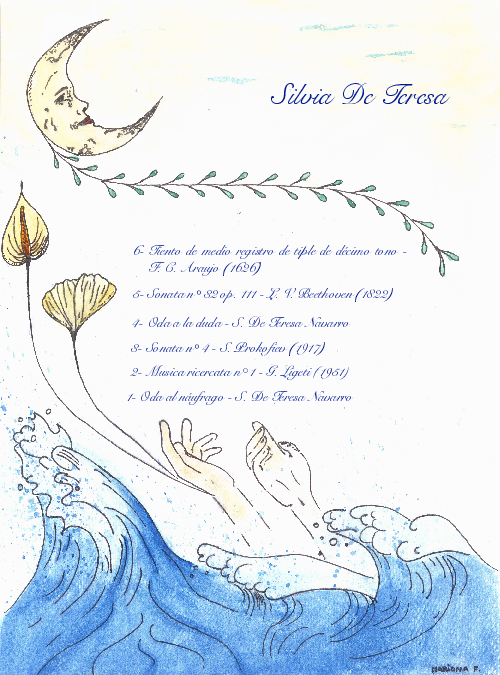 Silvia De Teresa
6- Tiento de medio registro de tiple de décimo tono -
F. C. Araujo (1626)
5- Sonata nº 32 op. 111 - L. V. Beethoven (1822)
4- Oda a la duda - S. De Teresa Navarro
3- Sonata nº 4 - S. Prokofiev (1917)
2- Musica ricercata nº 1 - G. Ligeti (1951)
1- Oda al náufrago - S. De Teresa Navarro
MARIANA F.